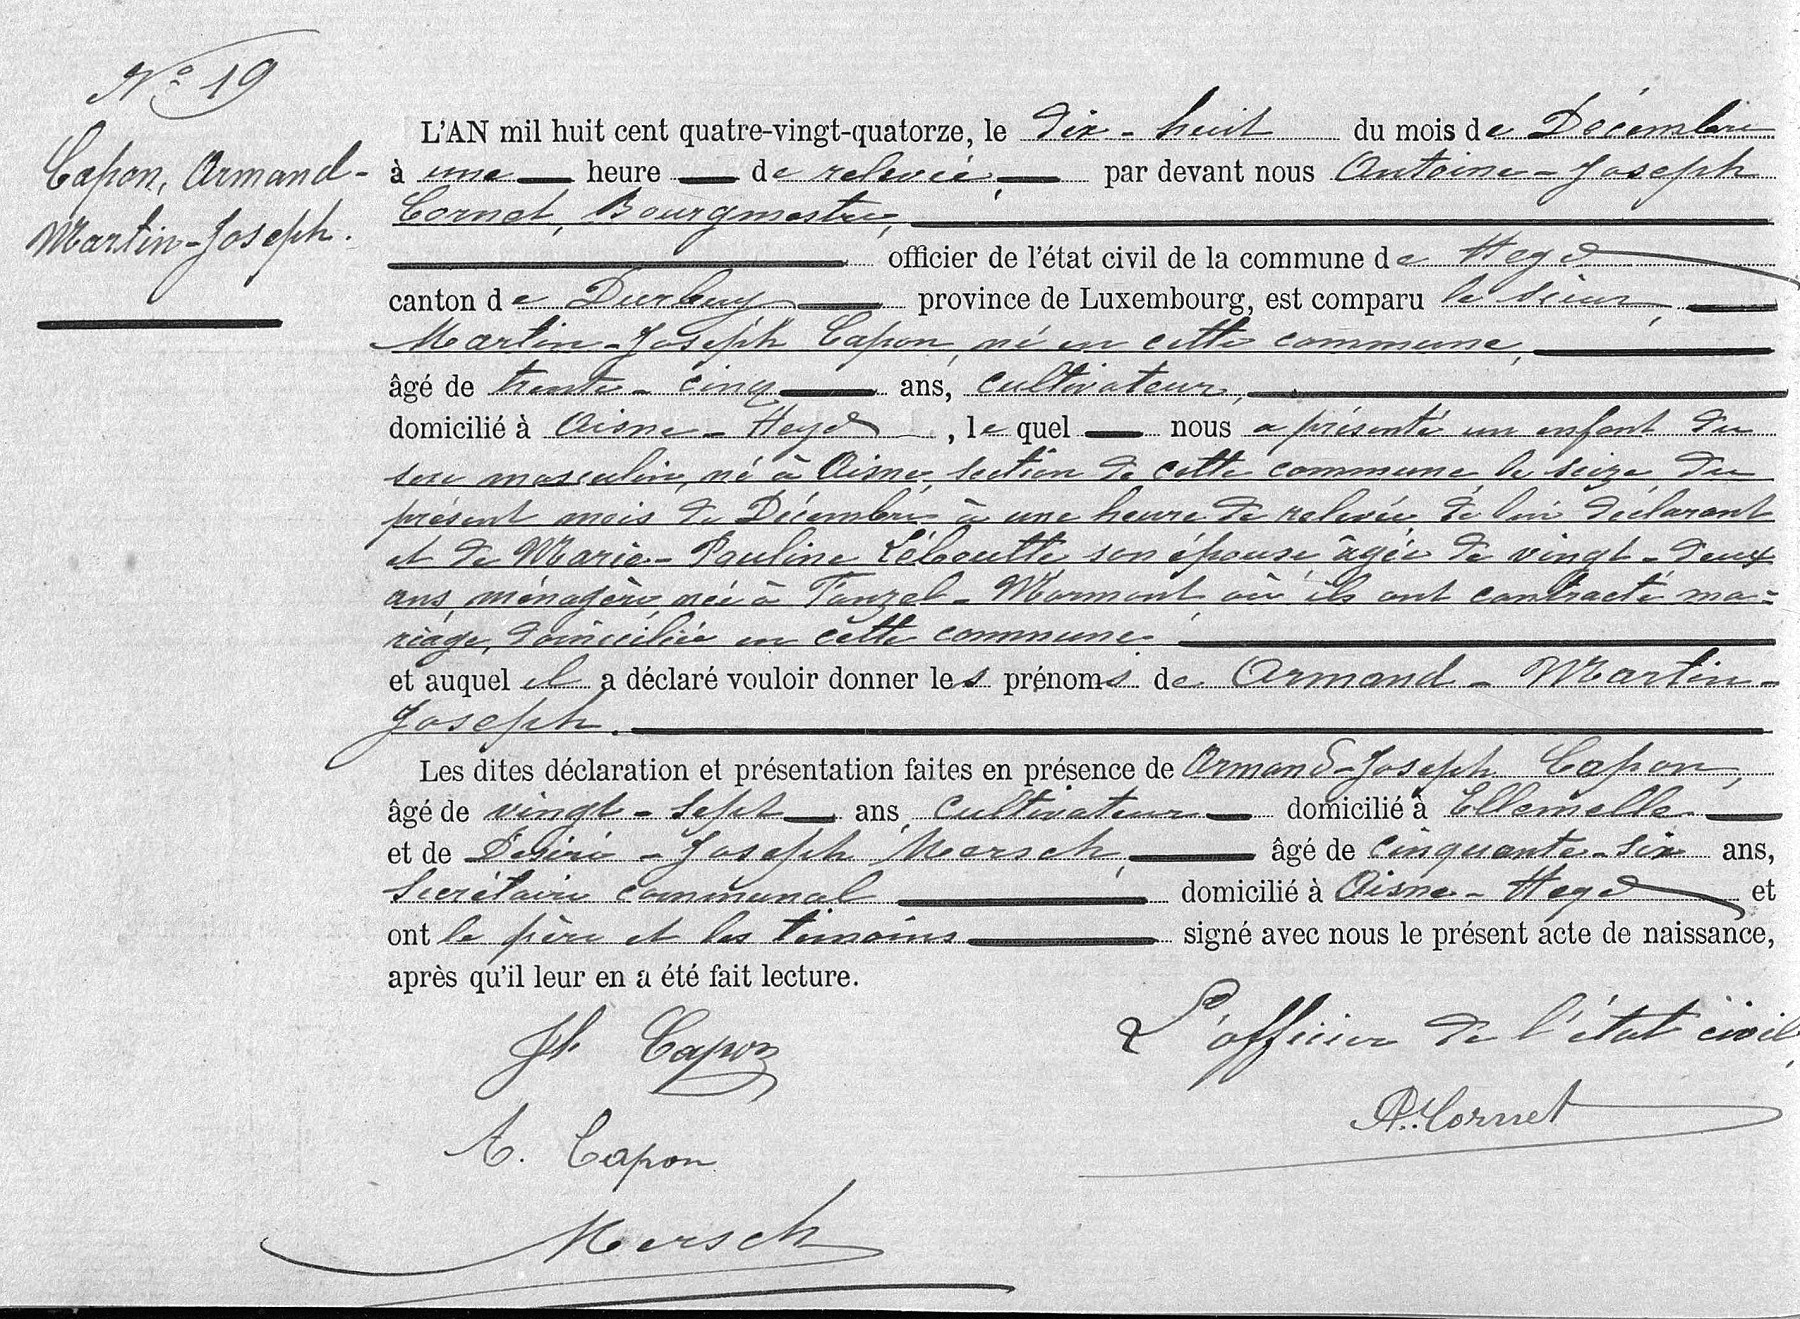 N° 19
Capon, Armand-
Martin-Joseph.
L'AN mil huit cent quatre-vingt-quatorze, le dix-huit du mois de Décembre
à une heure de relevée, par devant nous Antoine-Joseph
Cornet, Bourgmestre,
officier de l'état civil de la commune de Heyd
canton de Durbuy province de Luxembourg, est comparu le sieur,
Martin-Joseph Capon, né en cette commune,
âgé de trente-cinq ans, cultivateur,
domicilié à Aisne-Heyd, lequel nous a présenté un enfant du
sexe masculin, né à Aisne, section de cette commune, le seize du
présent mois de Décembre à une heure de relevée, de lui déclarant
et de Marie-Pauline Léboutte son épouse âgée de vingt-deux
ans, ménagère, née à Fanzel-Mormont où ils ont contracté ma=
riage, domiciliée en cette commune.
et auquel il a déclaré vouloir donner les prénoms de Armand-Martin-
Joseph.
Les dites déclaration et présentation faites en présence de Armand-Joseph Capon,
âgé de vingt-sept ans, cultivateur domicilié à Ellemelle
et de Désiré-Joseph Mersch, âgé de cinquante-six ans,
secrétaire communal domicilié à Aisne-Heyd et
ont le père et les témoins signé avec nous le présent acte de naissance,
après qu'il leur en a été fait lecture.
L'officier de l'état civil,
Jh Capon
A. Cornet
A. Capon
Mersch